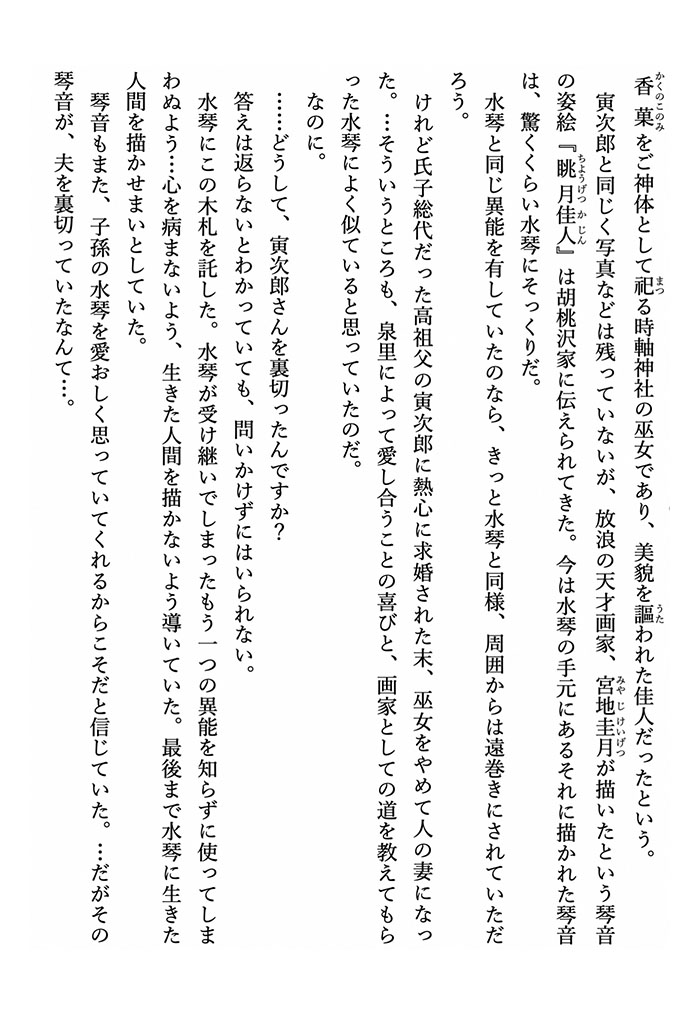 香菓をご神体として祀る時軸神社の巫女であり、美貌を謳われた佳人だったという。
寅次郎と同じく写真などは残っていないが、放浪の天才画家、宮地圭月が描いたという琴音
の姿絵『眺月佳人』は胡桃沢家に伝えられてきた。今は水琴の手元にあるそれに描かれた琴音
は、驚くくらい水琴にそっくりだ。
水琴と同じ異能を有していたのなら、きっと水琴と同様、周囲からは遠巻きにされていただ
ろう。
けれど氏子総代だった高祖父の寅次郎に熱心に求婚された末、巫女をやめて人の妻になっ
た。…そういうところも、泉里によって愛し合うことの喜びと、画家としての道を教えてもら
った水琴によく似ていると思っていたのだ。
なのに。
……どうして、寅次郎さんを裏切ったんですか？
答えは返らないとわかっていても、問いかけずにはいられない。
水琴にこの木札を託した。水琴が受け継いでしまったもう一つの異能を知らずに使ってしま
わぬよう…心を病まないよう、生きた人間を描かないよう導いていた。最後まで水琴に生きた
人間を描かせまいとしていた。
琴音もまた、子孫の水琴を愛おしく思っていてくれるからこそだと信じていた。…だがその
琴音が、夫を裏切っていたなんて…。